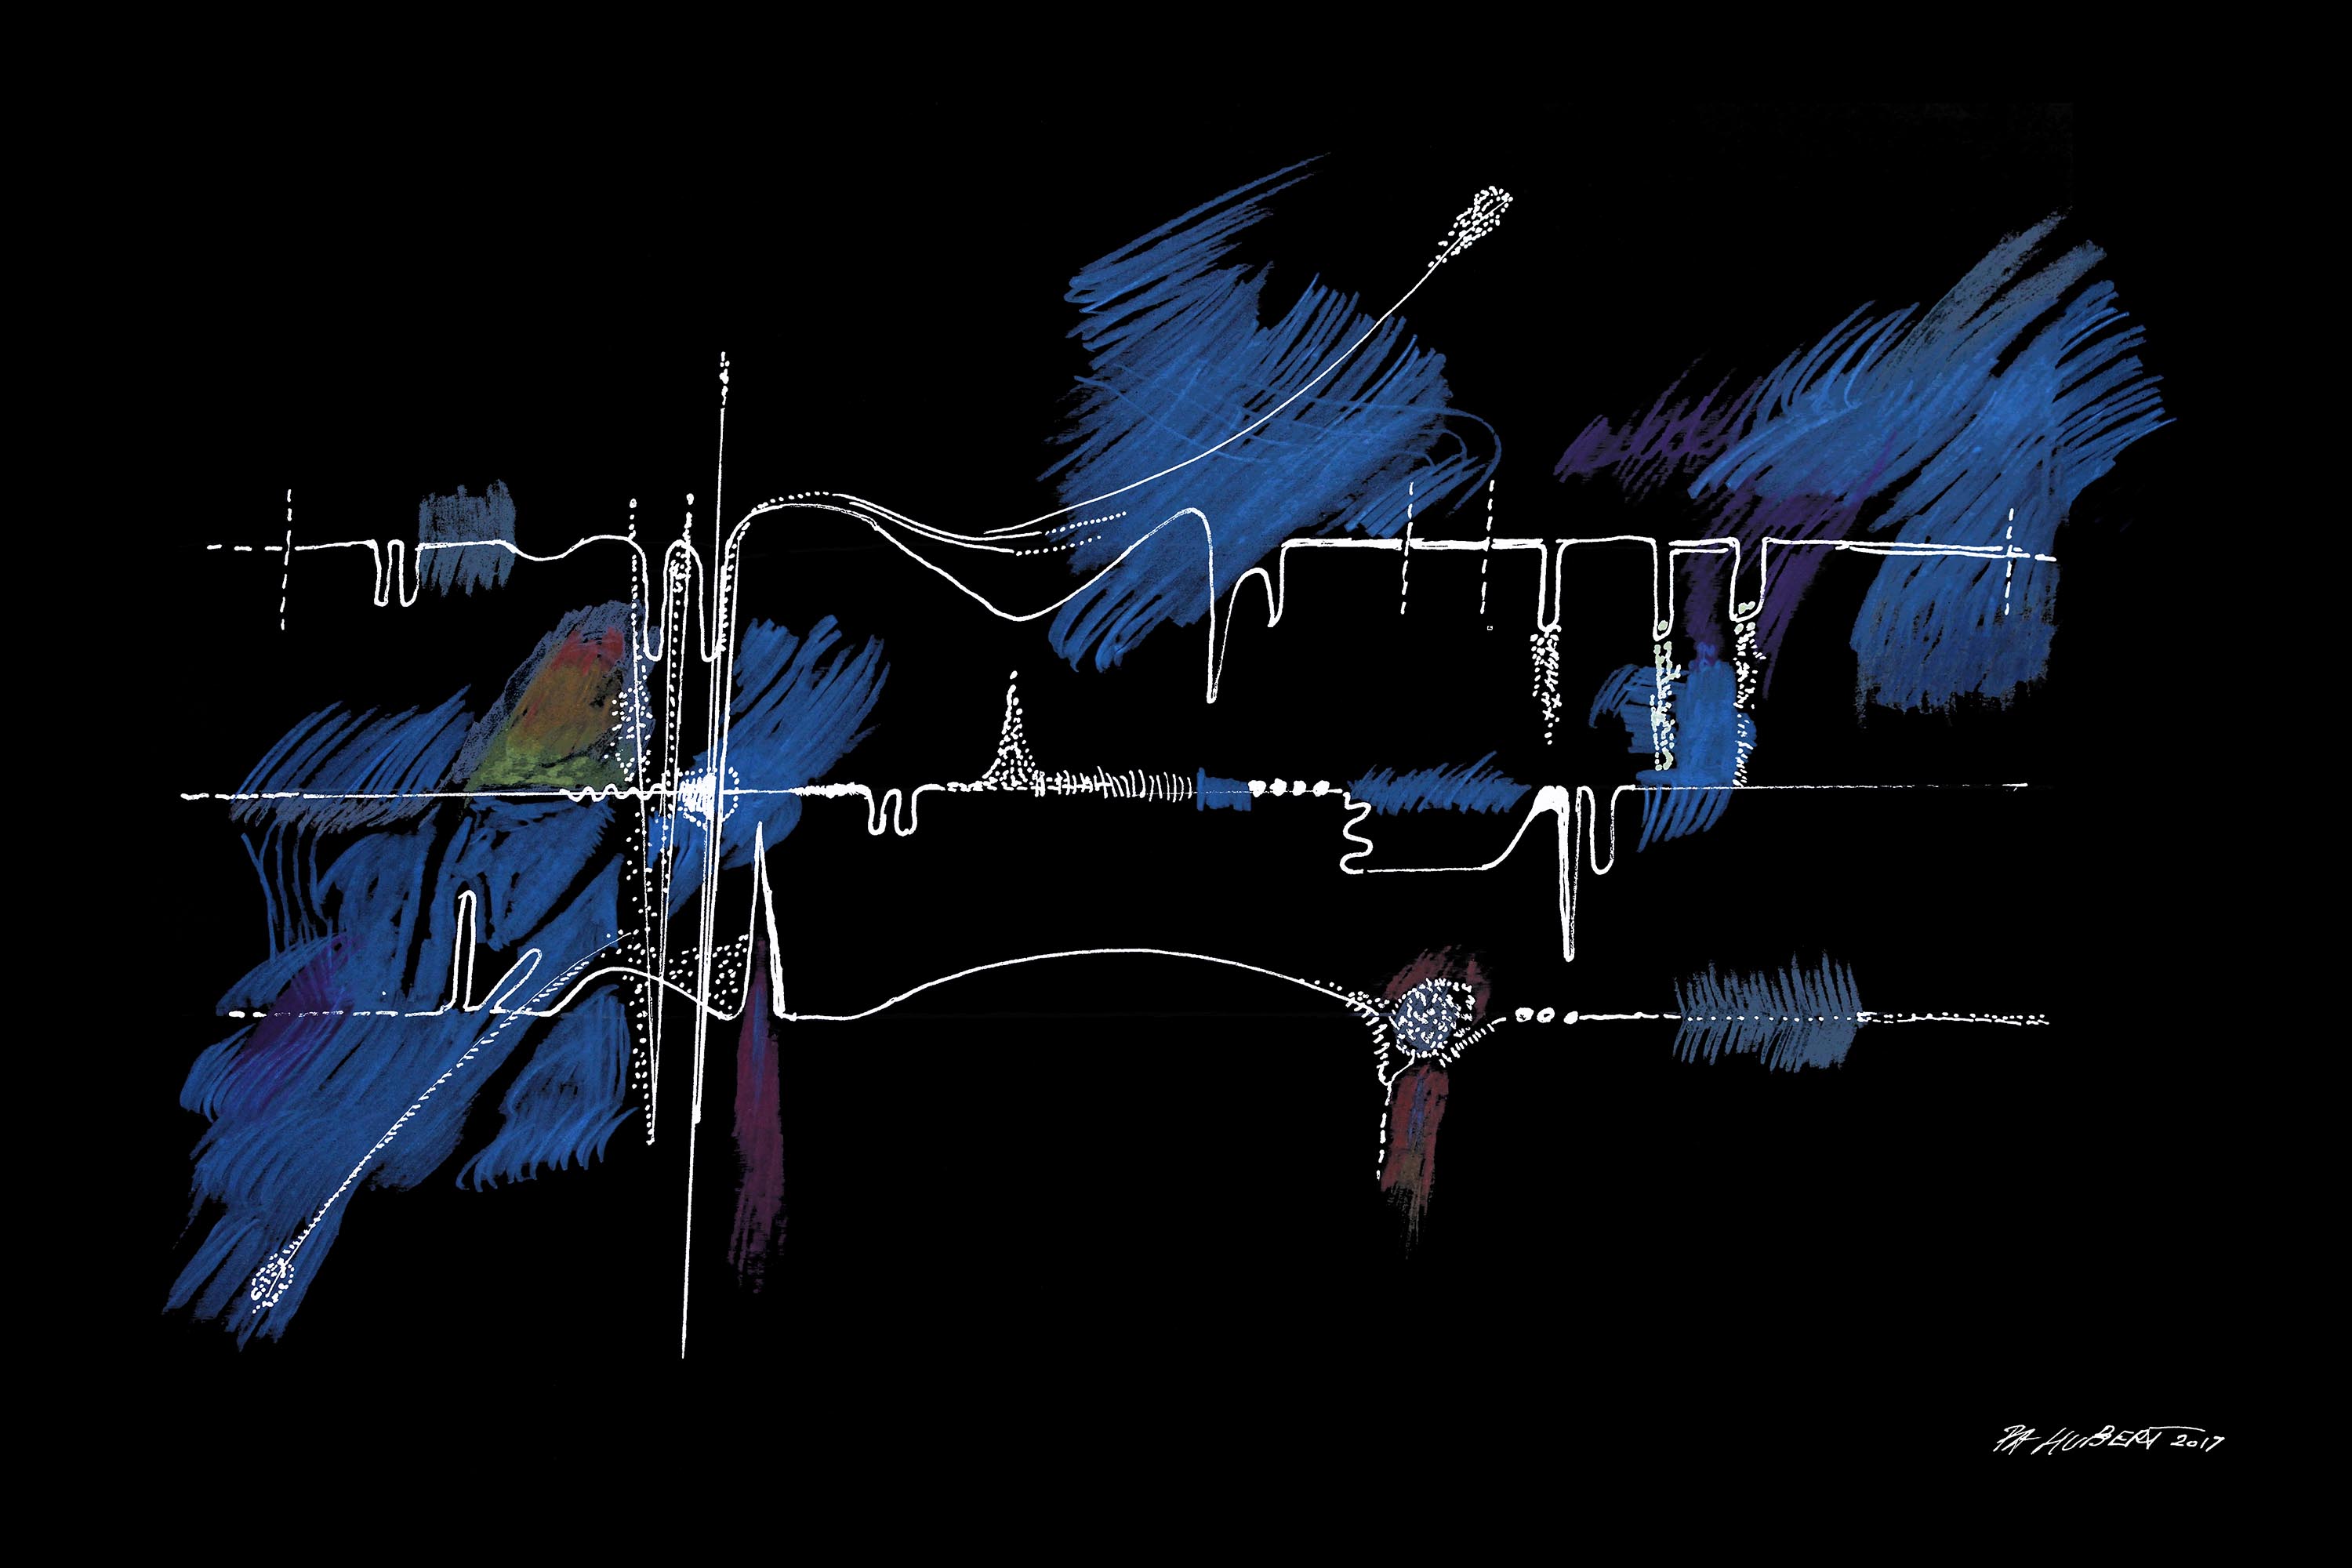 PA HUBERT 2017